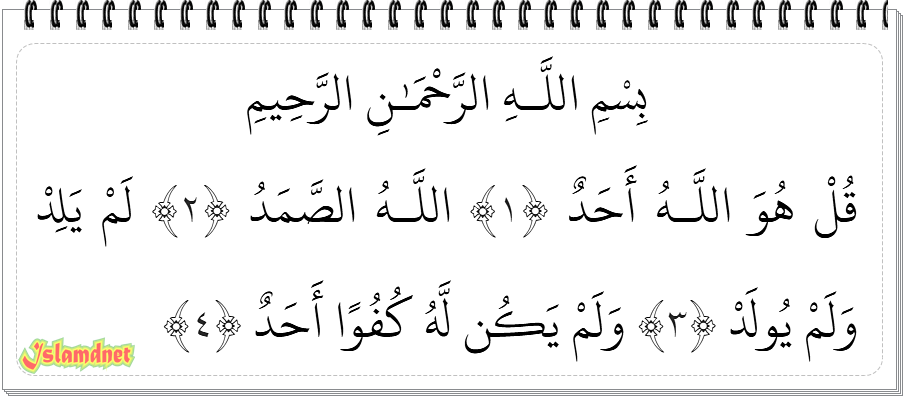 بِسْمِ اللَّـهِ الرَّحْمَـٰنِ الرَّحِيمِ
قُلْ هُوَ اللَّـهُ أَحَدٌ ﴿١﴾ اللَّـهُ الصَّمَدُ ﴿٢﴾ لَمْ يَلِدْ
وَلَمْ يُولَدْ ﴿٣﴾ وَلَمْ يَكُن لَّهُ كُفُوًا أَحَدٌ ﴿٤﴾
Islamdnet